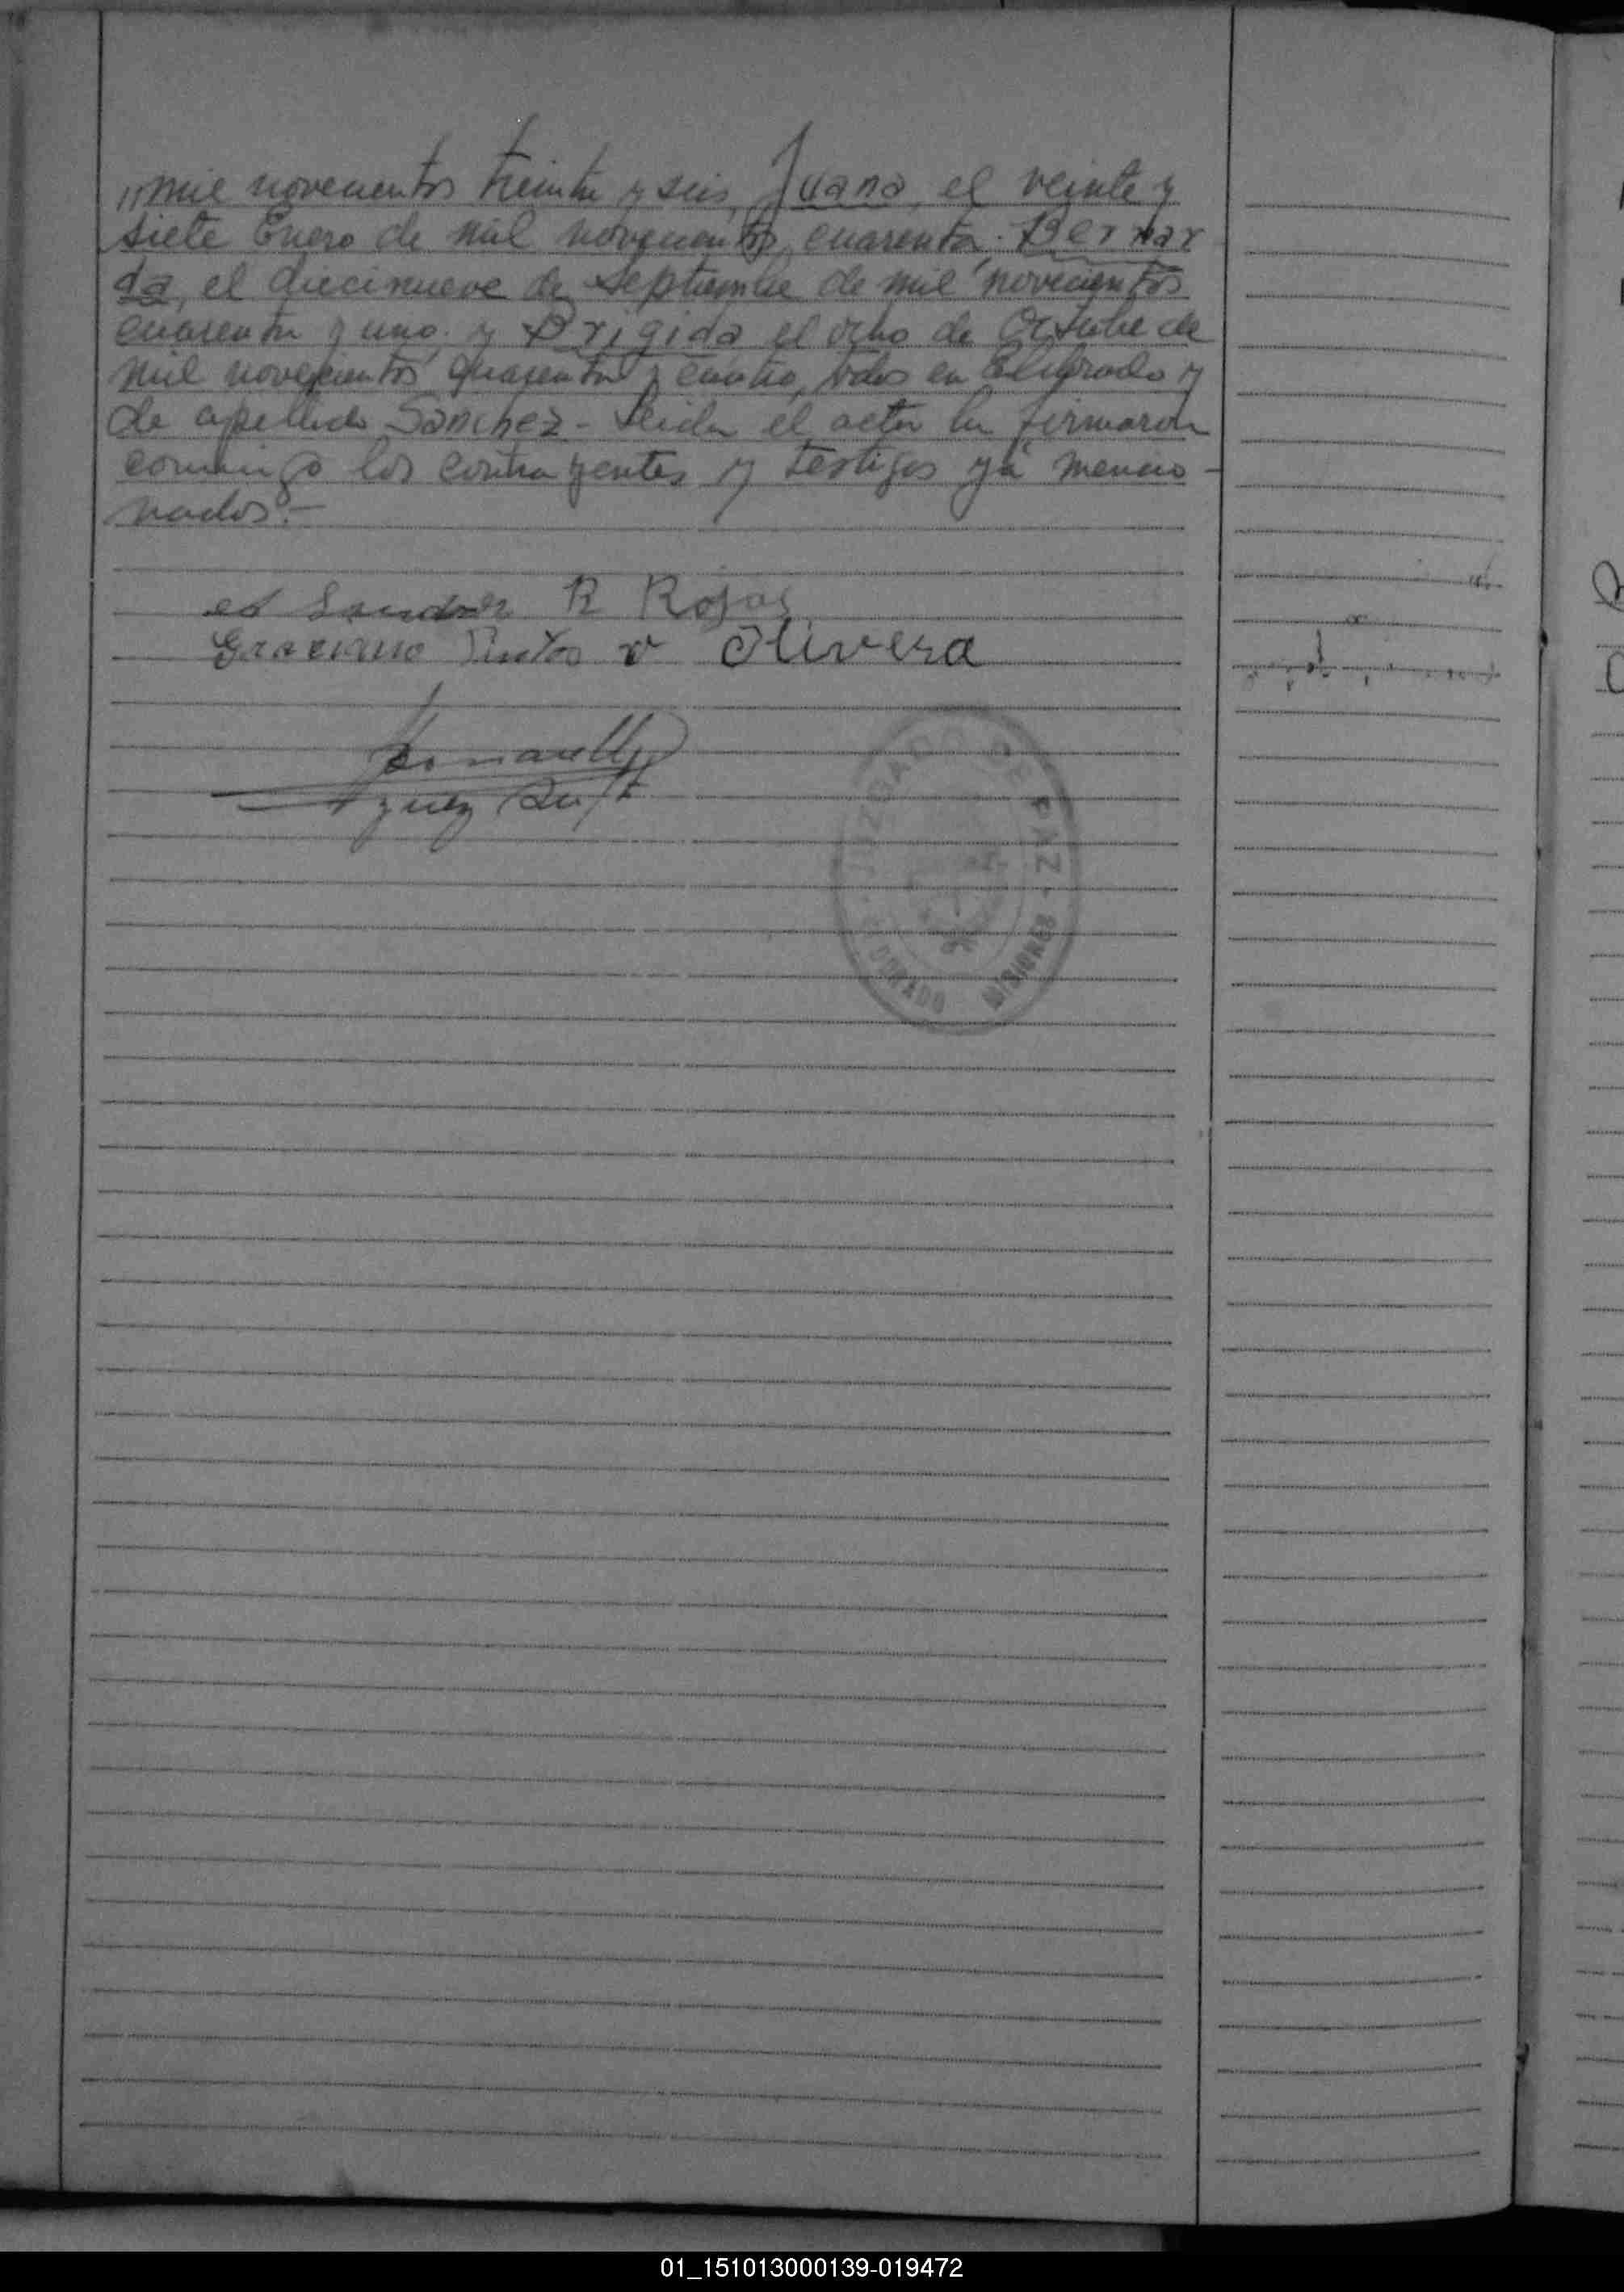 "mil novecientos treinta y seis, Juana, el veinte y
siete Enero de mil novecientos cuarenta. Bernar
da, el diecinueve de Septiembre de mil novecientos
cuarenta y uno. y Brigida el ocho de Octubre de
mil novecientos cuarenta y cuatro, todos en Eldorado y
de apellido Sanchez - Leida el acta la firmaron
conmigo los contrayentes y testigos yá mencio-
nados.-
R Rojas
Olivera
JUZGADO DE PAZ -
DORADO MISIONES
01_151013000139-019472